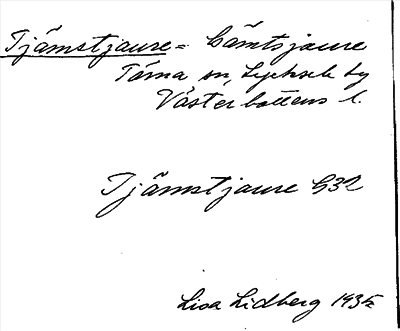 Tjämstjaure = Gämtsjaure
Tärna sn, Lycksele tg
Västerbottens l.
Tjämstjaure G32
Lisa Lidberg 1935